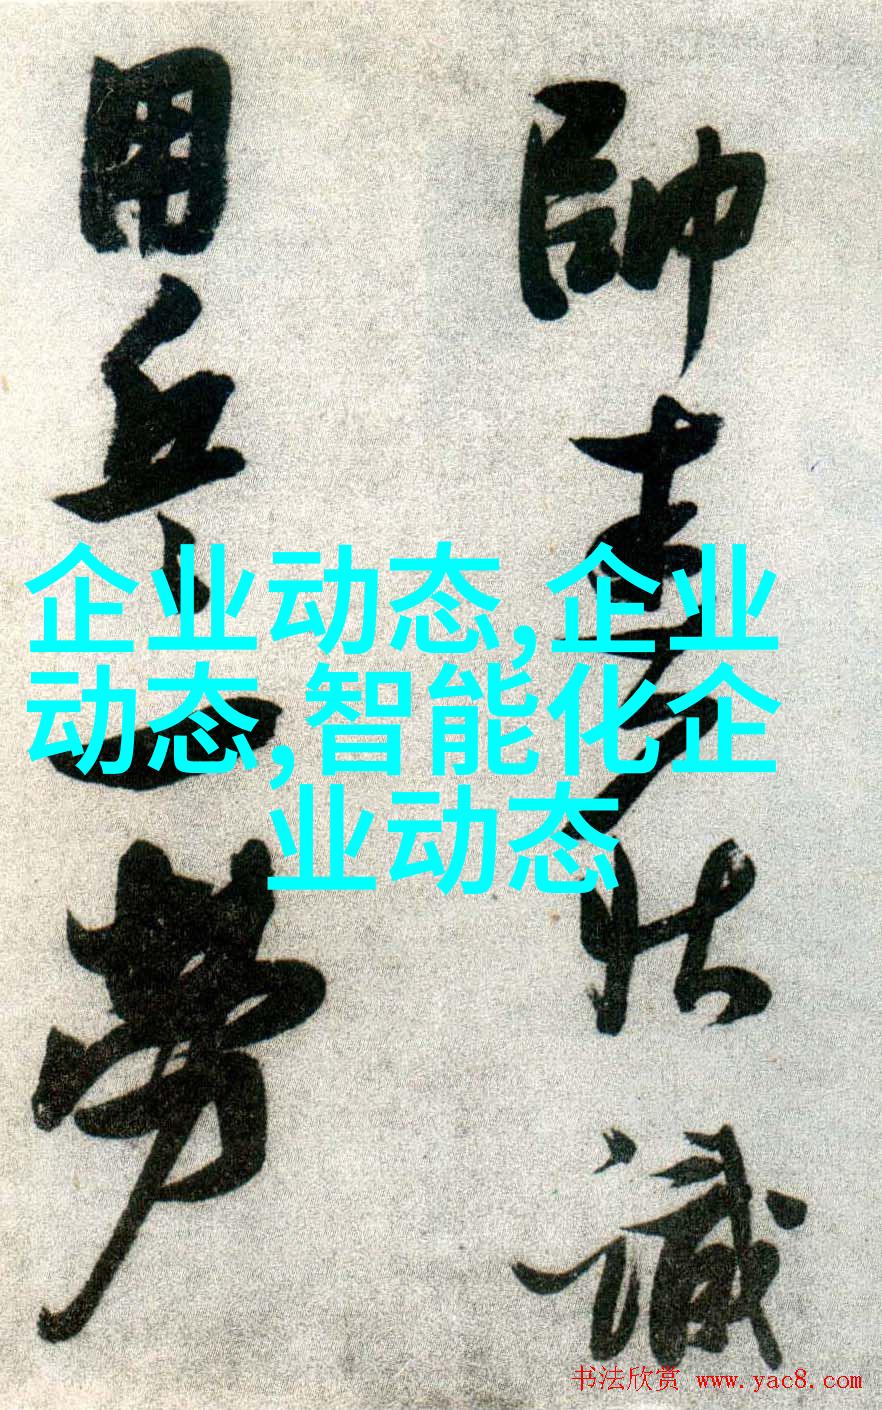 帥 識
用兵一勞
企业动态,企业
动态,智能化企
业动态
书法欣赏 www.yac8.com